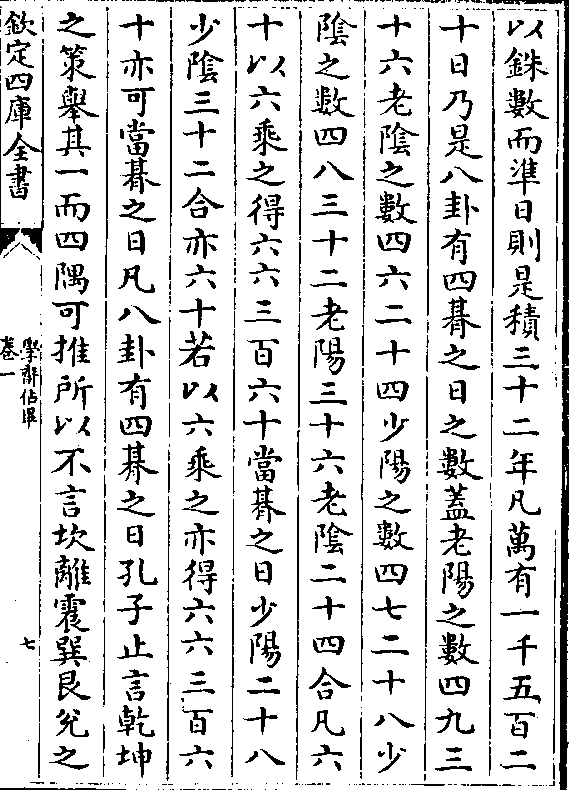 以銖數而準日則是積三十二年凡萬有一千五百二
十日乃是八卦有四朞之日之數蓋老陽之數四九三
十六老陰之數四六二十四少陽之數四七二十八少
陰之數四八三十二老陽三十六老陰二十四合凡六
十以六乘之得六六三百六十當朞之日少陽二十八
少陰三十二合亦六十若以六乘之亦得六六三百六
十亦可當朞之日凡八卦有四朞之日孔子止言乾坤
之策舉其一而四隅可推所以不言坎離震巽艮兌之
欽定四庫全書
學齋佔畢
卷一
七